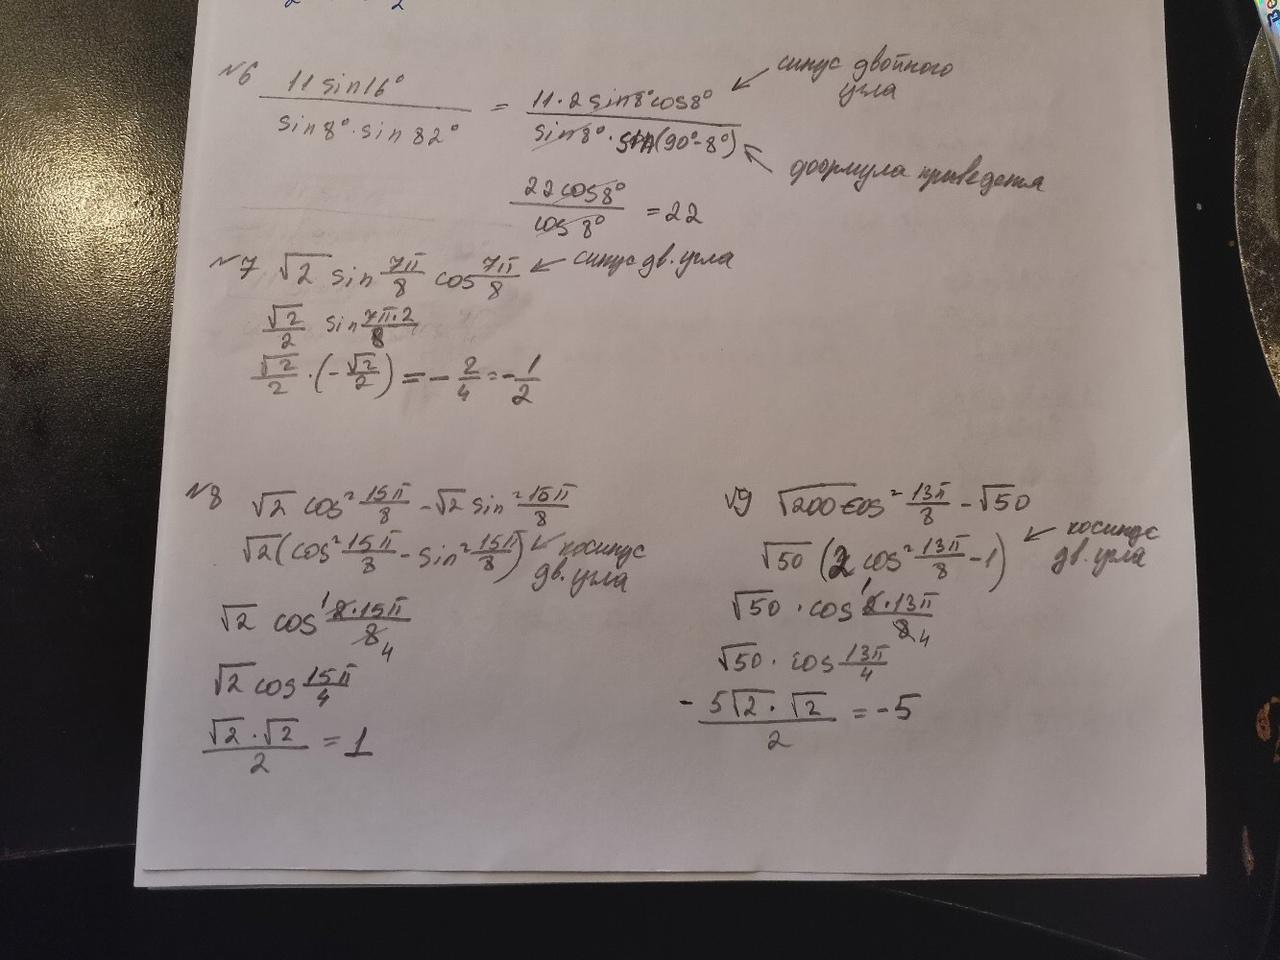 2 2
№6 11 sin16° / sin8°·sin82° = 11·2 sin8°cos8° / sin8°·sin(90°-8°) синус двойного угла
формула приведения
22cos8° / cos8° = 22
№7 √2 sin 7π/8 cos 7π/8 ← синус дв. угла
√2/2 sin 7π·2/8
√2/2 · (-√2/2) = -2/4 = -1/2
№8 √2 cos² 15π/8 - √2 sin² 15π/8
√2(cos² 15π/8 - sin² 15π/8) косинус дв. угла
√2 cos 2·15π/8 1 4
√2 cos 15π/4
√2·√2 / 2 = 1
√9 √200 cos² 13π/8 - √50
√50 (2 cos² 13π/8 - 1) косинус дв. угла
√50 · cos 2·13π/8 1 4
√50 · cos 13π/4
- 5√2·√2 / 2 = -5